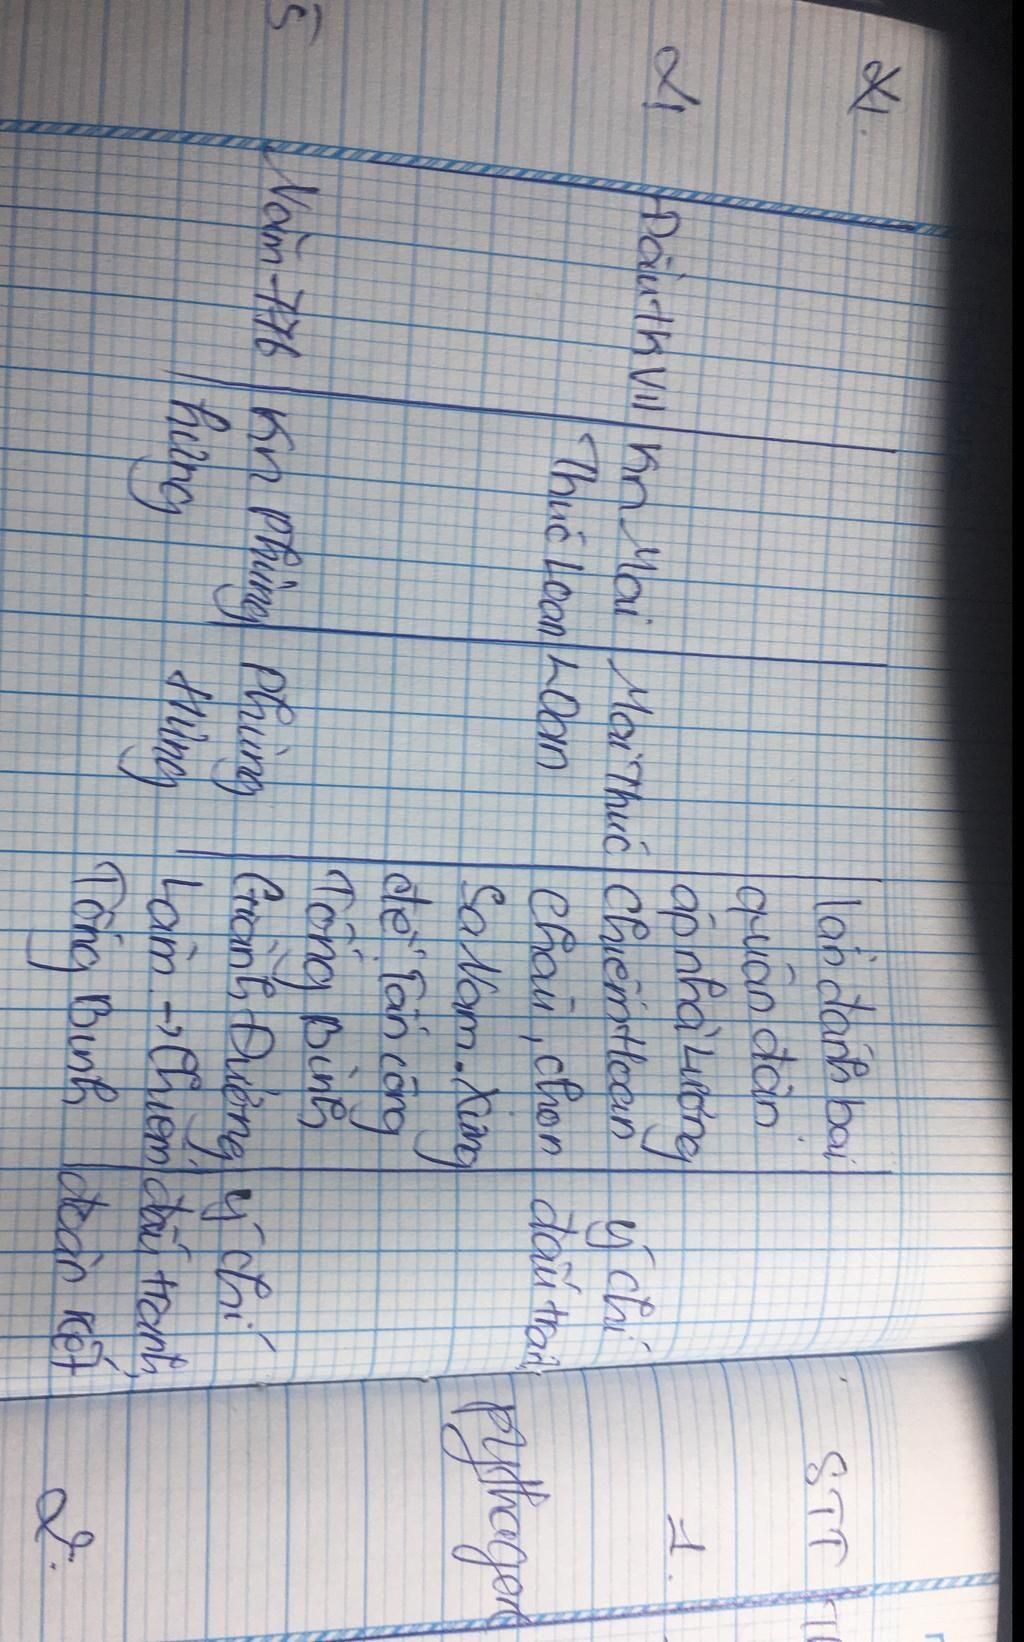 lần đánh bại
quân dân.
áp nhà Lương
4
Đầu tk VII
Kn Mai
Thúc Loan
Mai Thúc
Loan
Chiếm Hoan
Châu, chọn
Sa Nam. Xưng
đế. Tấn công
Tống Bình
ý chí
đấu tranh
5
Năm 776
Kn Phùng
hưng
Phùng
Hưng
Giành Đường
Lâm → Chiếm
Tống Bình
ý chí
đấu tranh,
đoàn kết
STT
1.
Pythagore
2.